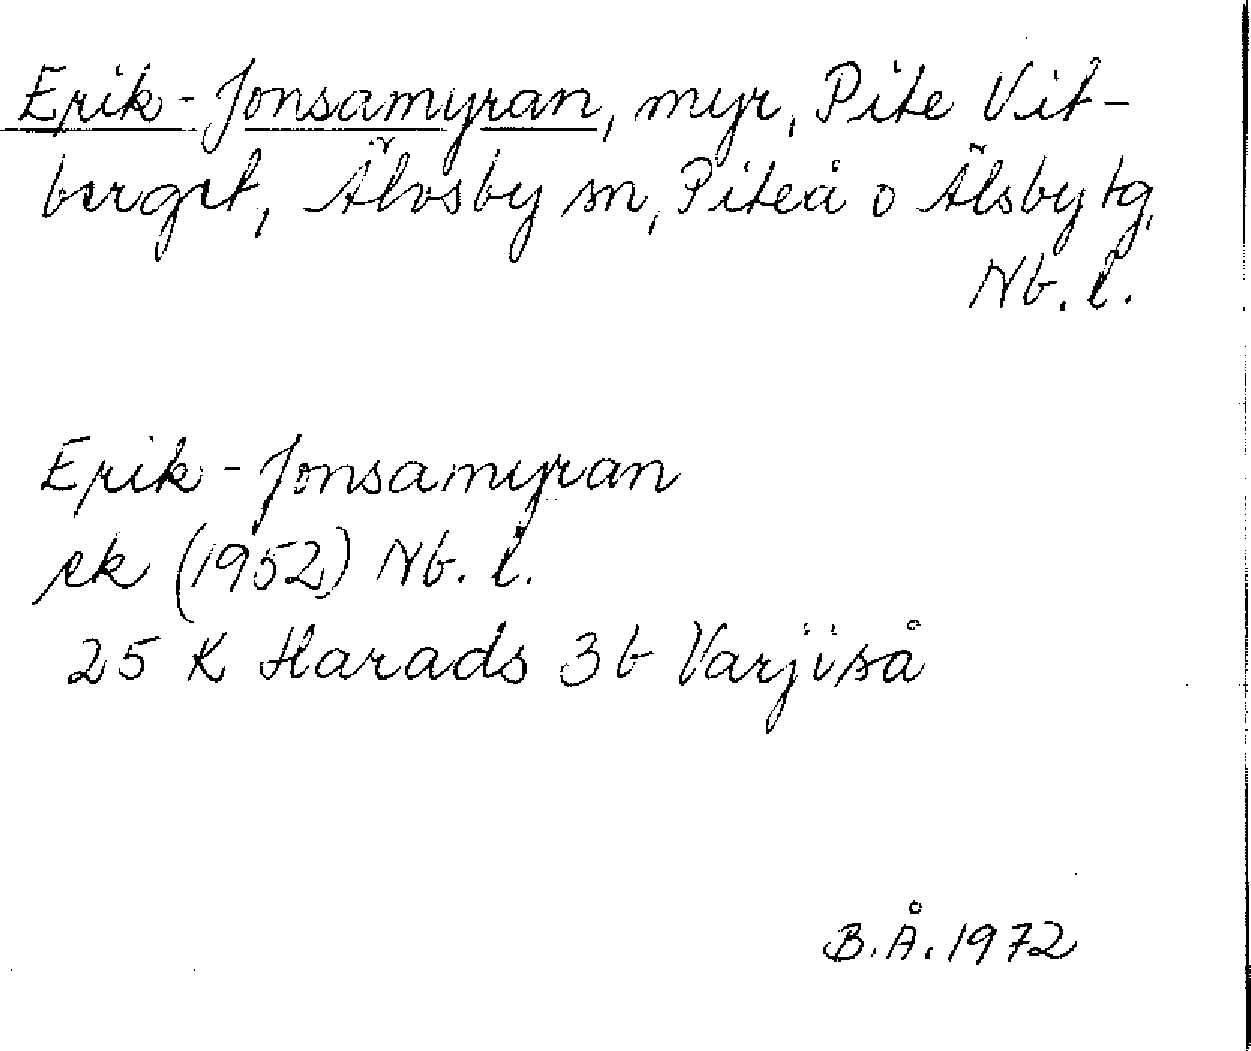 Erik-Jonsamyran, myr, Pite Vit-
berget, Älvsby sn, Piteå o Älsby tg,
Nb. l.
Erik-Jonsamyran
ek (1952) Nb. l.
25 K Harads 3b Varjiså
B.Å. 1972